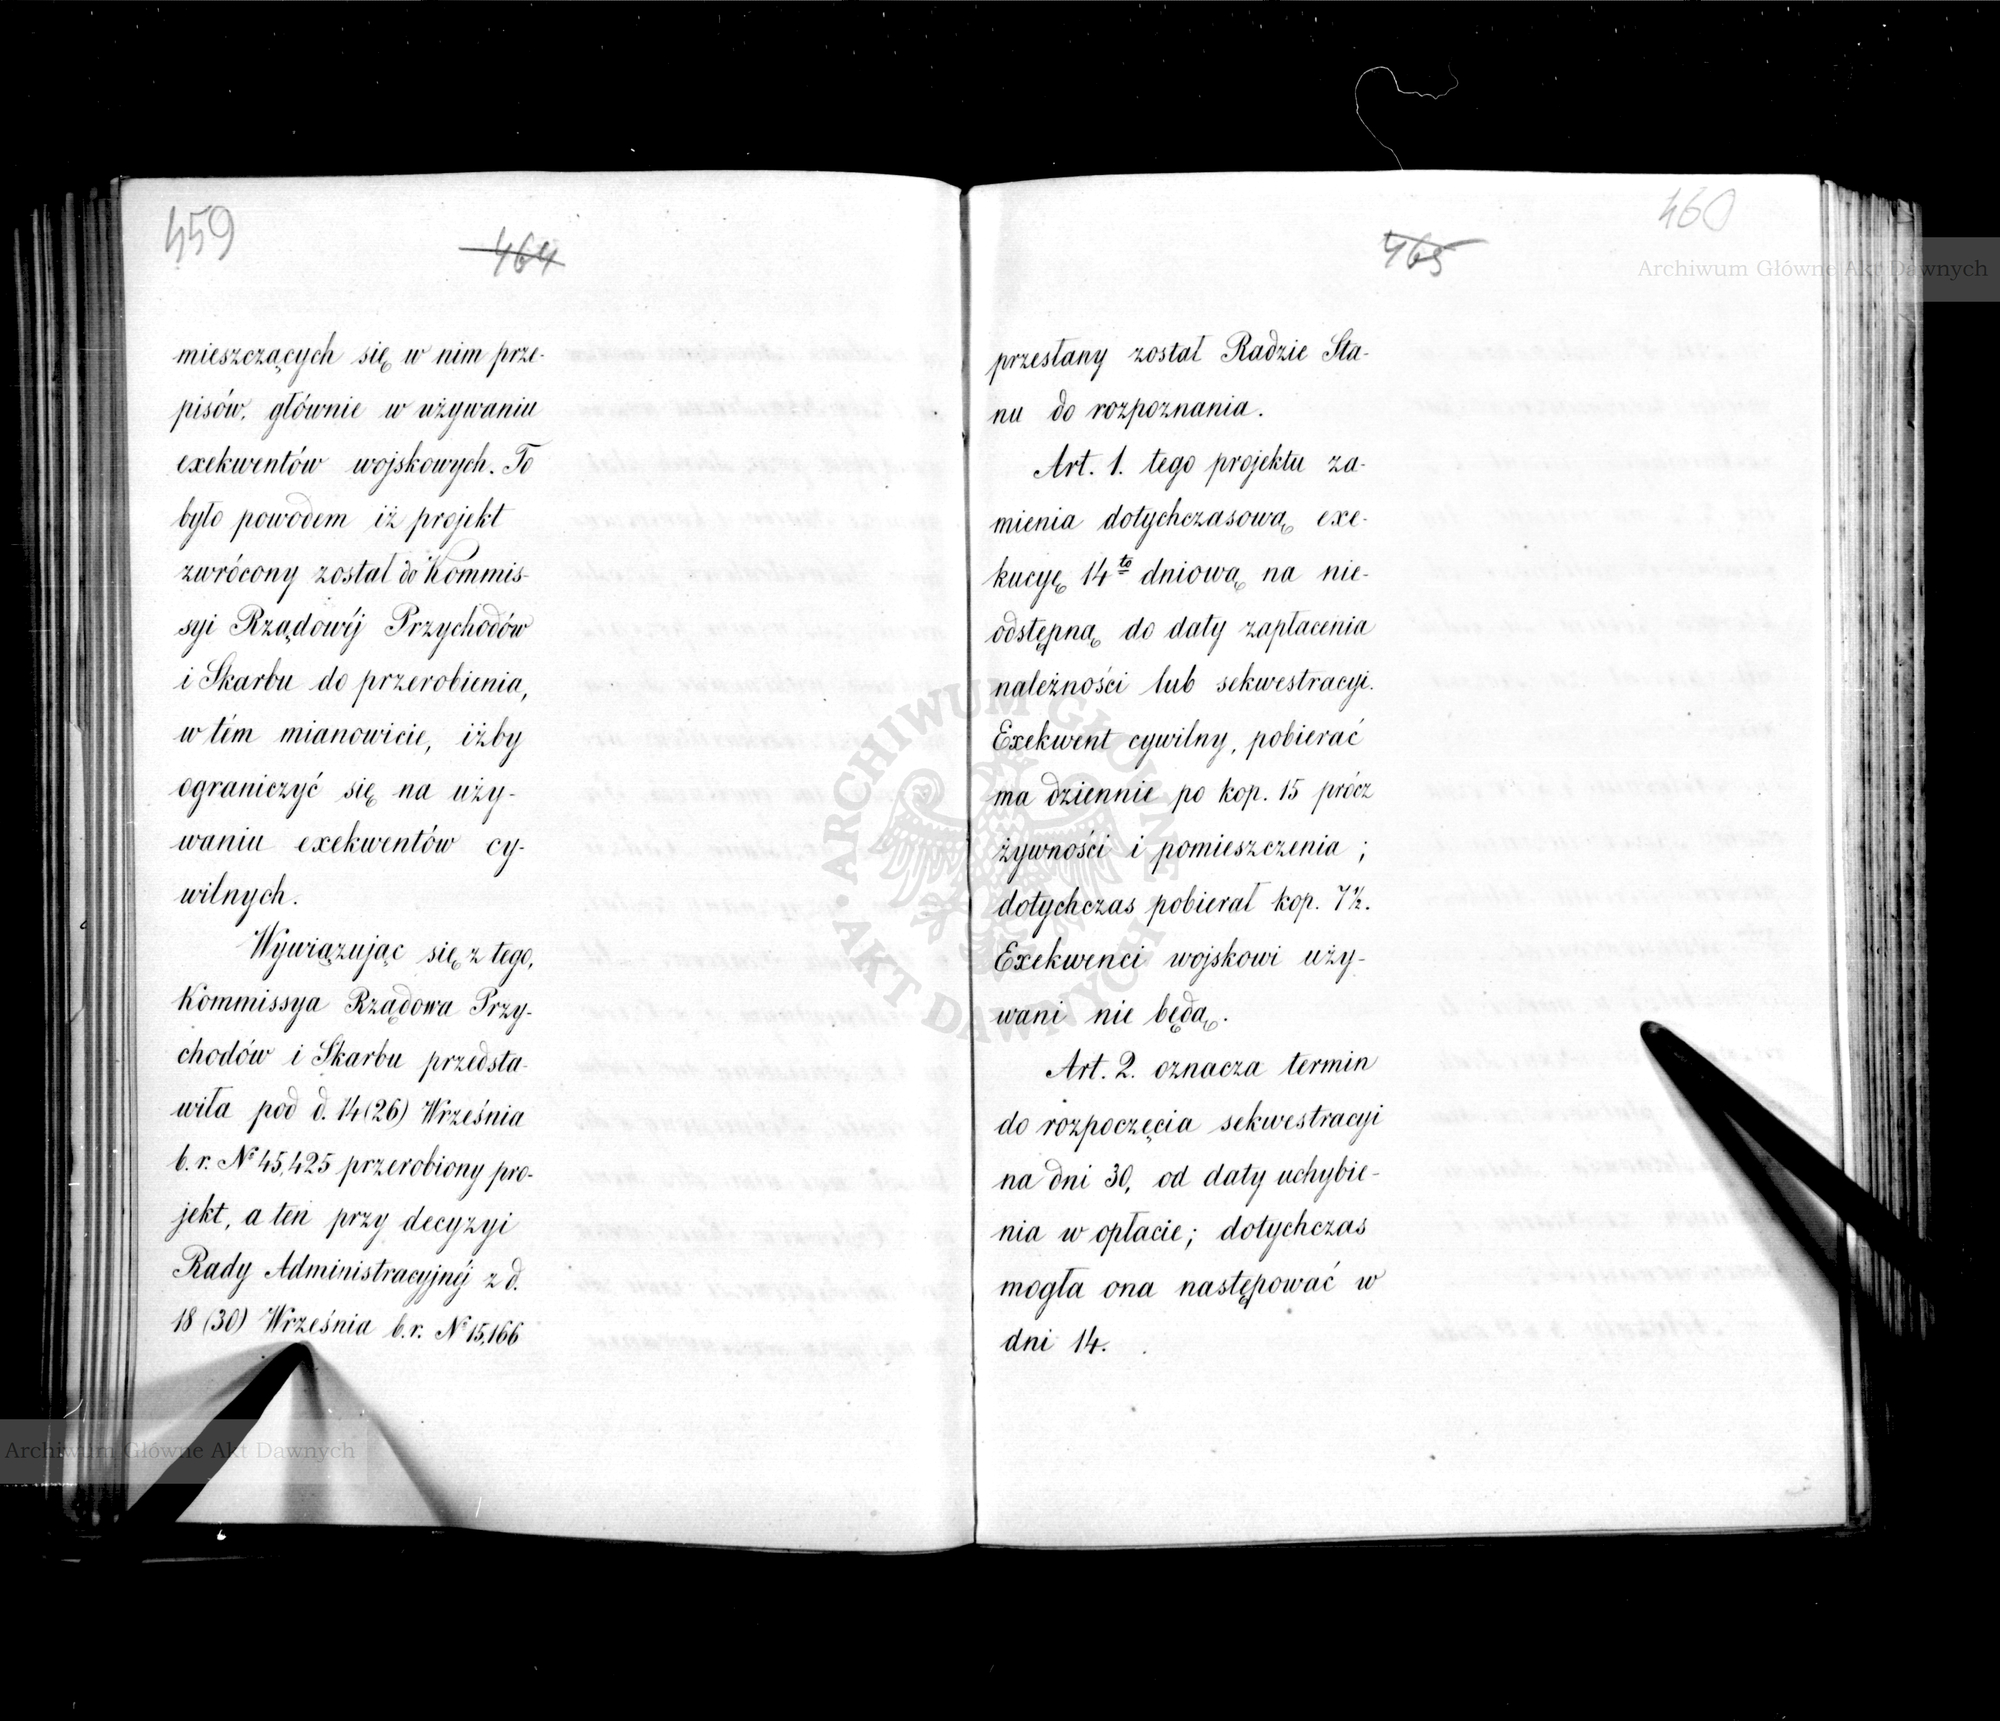 459
464
mieszczących się w nim prze-
pisów, głównie w używaniu
exekwentów wojskowych. To
było powodem iż projekt
zwrócony został do Kommis-
syi Rządowéj Przychodów
i Skarbu do przerobienia,
w tém mianowicie, iżby
ograniczyć się na uży-
waniu exekwentów cy-
wilnych.
Wywiązując się z tego,
Kommissya Rządowa Przy-
chodów i Skarbu przedsta-
wiła pod d. 14(26) Września
b. r. No 45,425 przerobiony pro-
jekt, a ten przy decyzyi
Rady Administracyjnéj z d.
18 (30) Września b. r. No 15,166
460
465
przesłany został Radzie Sta-
nu do rozpoznania.
Art. 1. tego projektu za-
mienia dotychczasową exe-
kucyę 14to dniową na nie-
odstępną do daty zapłacenia
należności lub sekwestracyi.
Exekwent cywilny, pobierać
ma dziennie po kop. 15 prócz
żywności i pomieszczenia ;
dotychczas pobierał kop. 7½.
Exekwenci wojskowi uży-
wani nie będą.
Art. 2. oznacza termin
do rozpoczęcia sekwestracyi
na dni 30, od daty uchybie-
nia w opłacie; dotychczas
mogła ona następować w
dni 14.
Archiwum Główne Akt Dawnych
Archiwum Główne Akt Dawnych
ARCHIWUM GŁÓWNE
AKT DAWNYCH